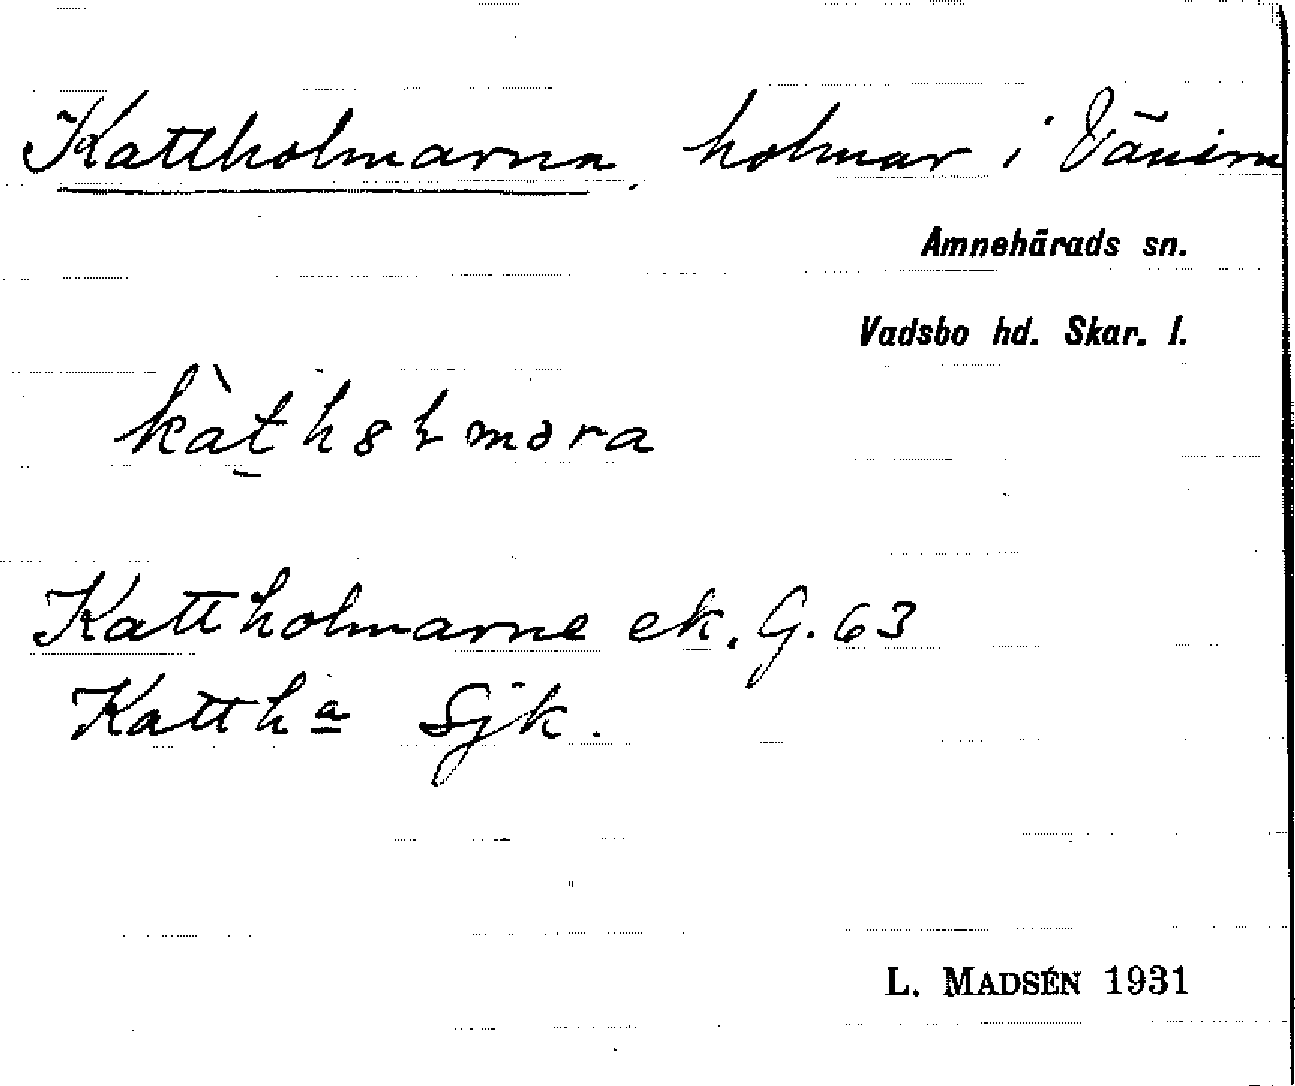 Kattholmarna, holmar i Vänern
Amnehärads sn.
Vadsbo hd. Skar. l.
Kattholmarne ek. G. 63
Katth a Sjk.
L. MADSÉN 1931